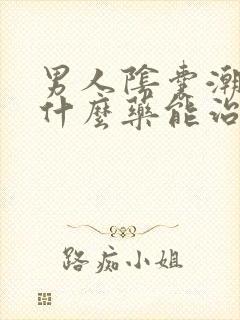 男人陰囊潮
什麼藥能治
路痴小姐